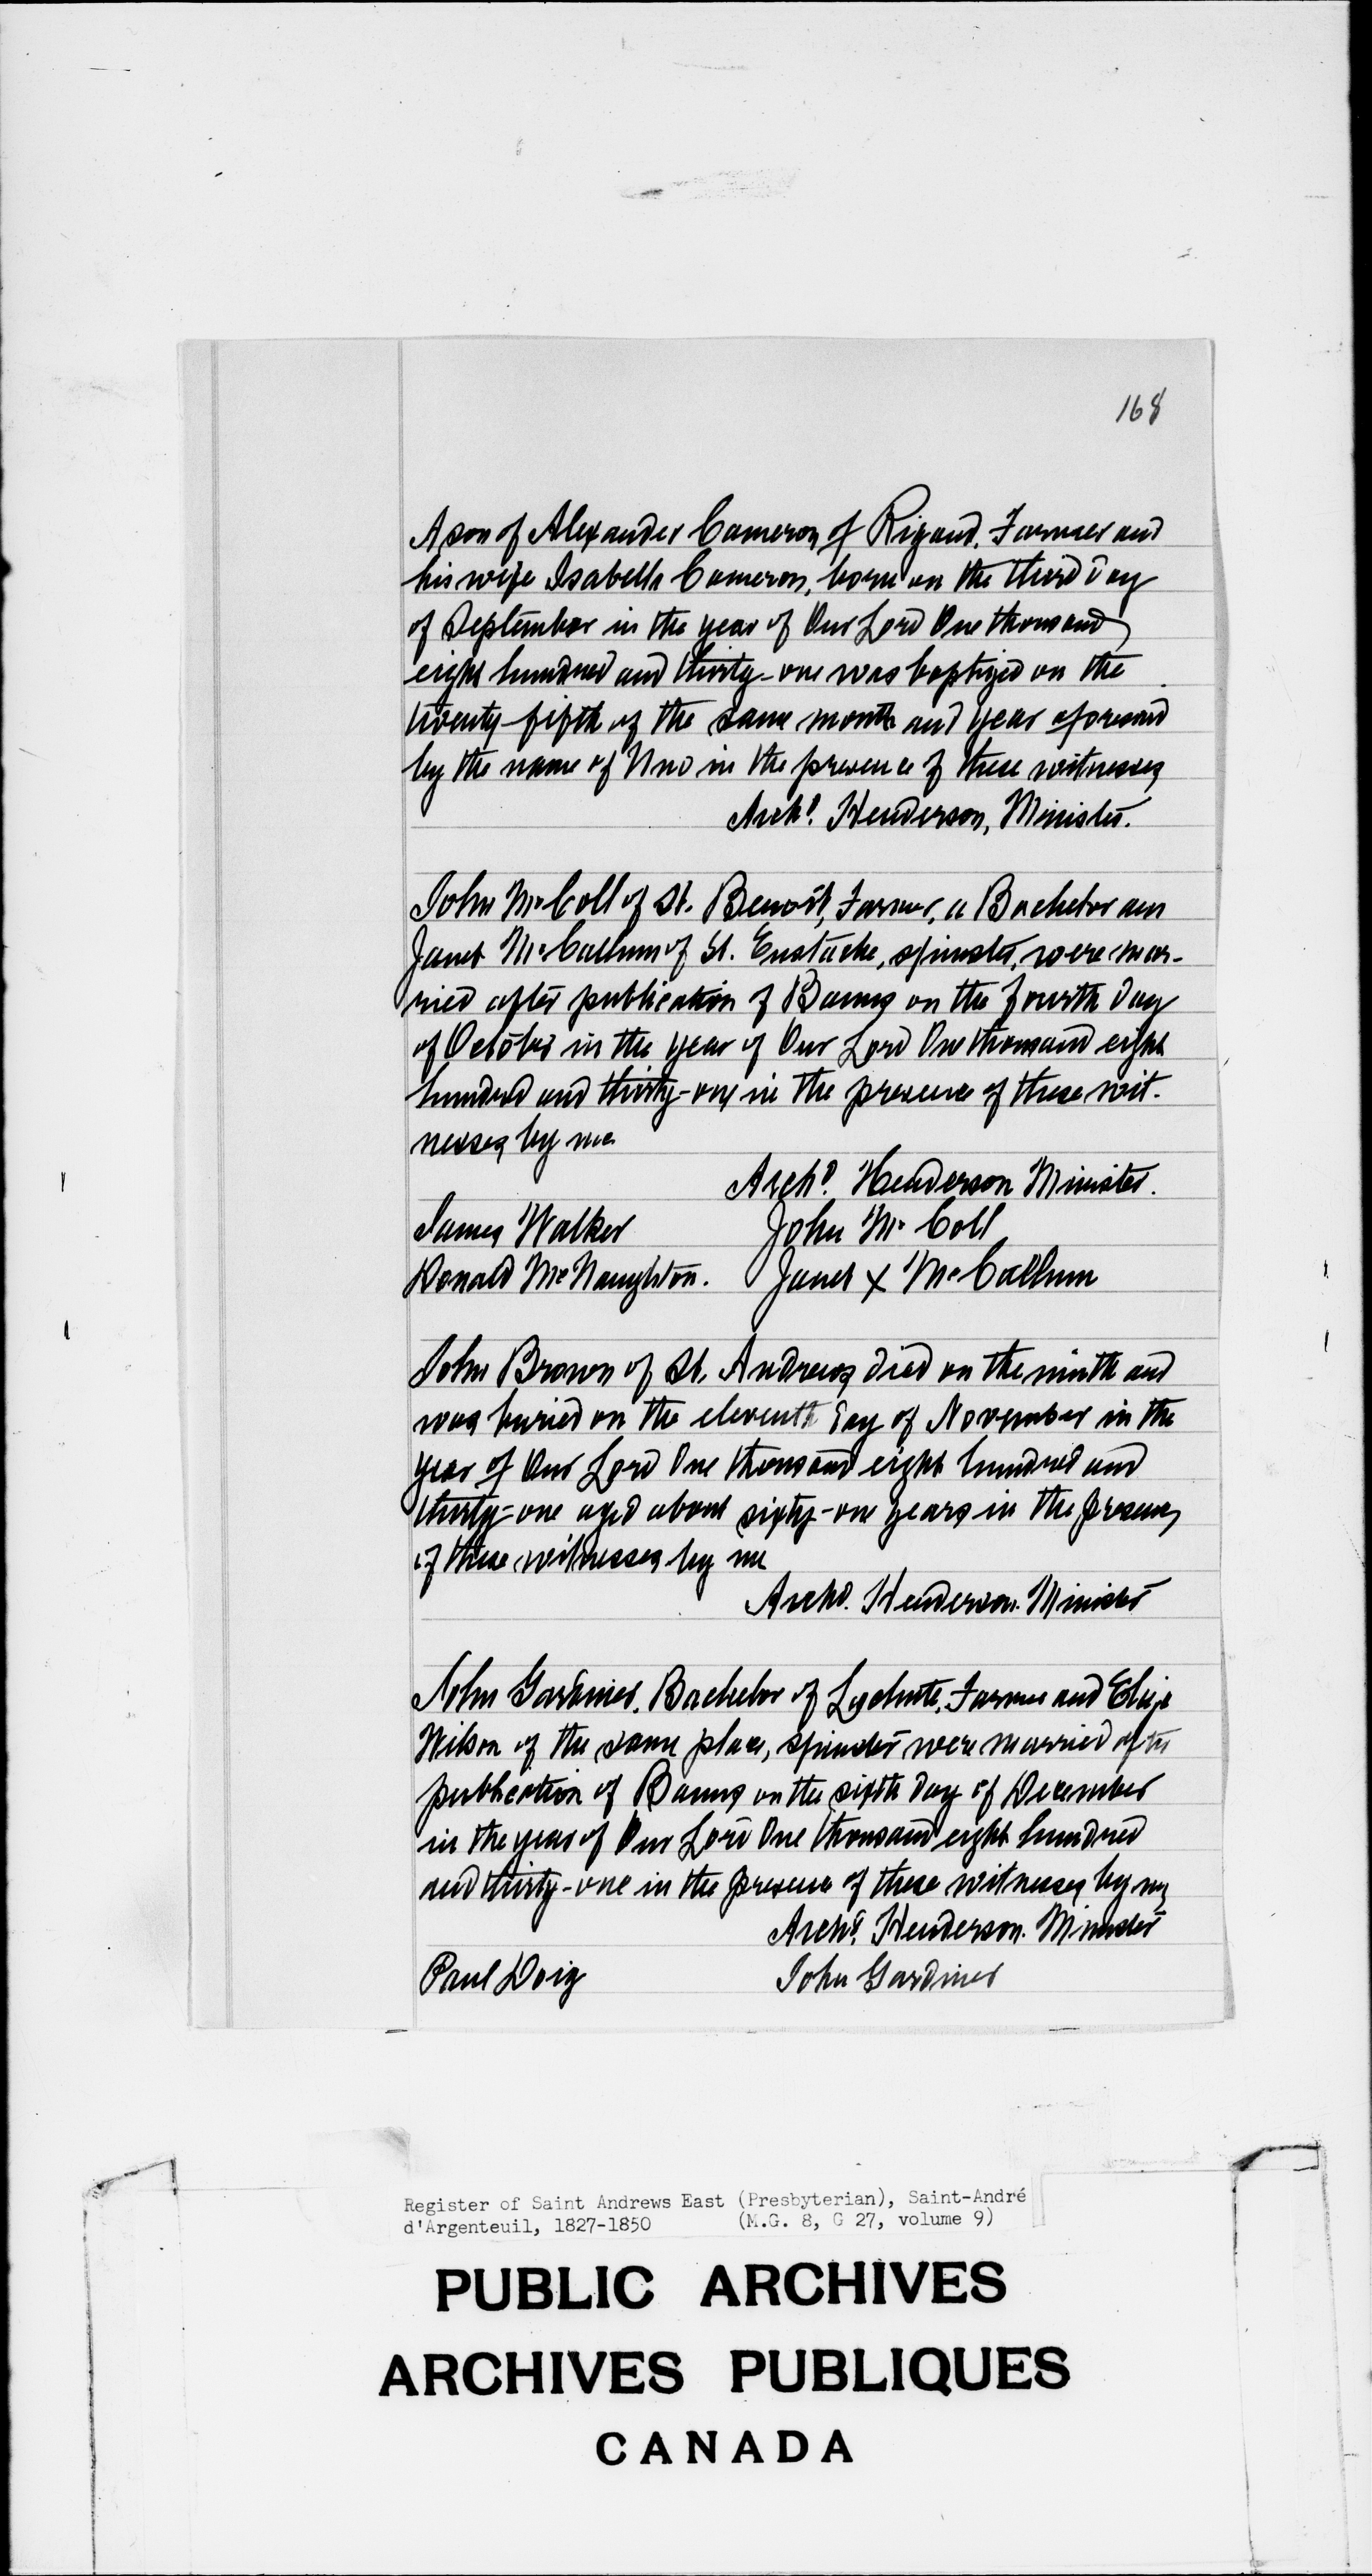 168
A son of Alexander Cameron of Rigaud, Farmer and
his wife Isabella Cameron, born on the third day
of September in the year of Our Lord One thousand
eight hundred and thirty-one was baptized on the
twenty-fifth of the same month and year aforesaid
by the name of in the presence of these witnesses
Archd. Henderson, Minister.
John McColl of St. Benoit, Farmer, a Bachelor and
Janet McCallum of St. Eustache, spinster, were mar-
ried after publication of Banns on the fourth day
of October in the year of Our Lord One thousand eight
hundred and thirty-one in the presence of these wit-
nesses by me
Archd. Henderson Minister.
James Walker John McColl
Donald McNaughton. Janet X McCallum
John Brown of St. Andrews died on the ninth and
was buried on the eleventh day of November in the
year of Our Lord One thousand eight hundred and
thirty-one aged about sixty-one years in the presence
of these witnesses by me
Archd. Henderson. Minister
John Gardiner, Bachelor of Lachute, Farmer and Eliza
Wilson of the same place, spinster were married after
publication of Banns on the sixth day of December
in the year of Our Lord One thousand eight hundred
and thirty-one in the presence of these witnesses by me
Archd. Henderson. Minister
Paul Doig John Gardiner
Register of Saint Andrews East (Presbyterian), Saint-André
d'Argenteuil, 1827-1850 (M.G. 8, G 27, volume 9)
PUBLIC ARCHIVES
ARCHIVES PUBLIQUES
CANADA